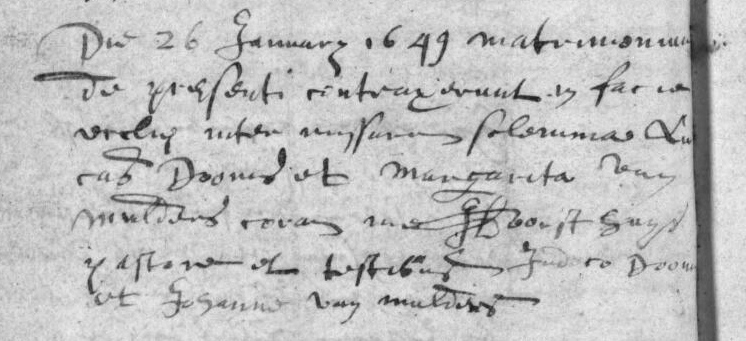 Die 26 January 1649 matrimonium
de presenti contraxerunt in facie
ecclie inter missarum solemnia Lu
cas Dooms et Margarita van
mulders coram me
pastore et testibus Judoco Doom
et Johanne van mulders